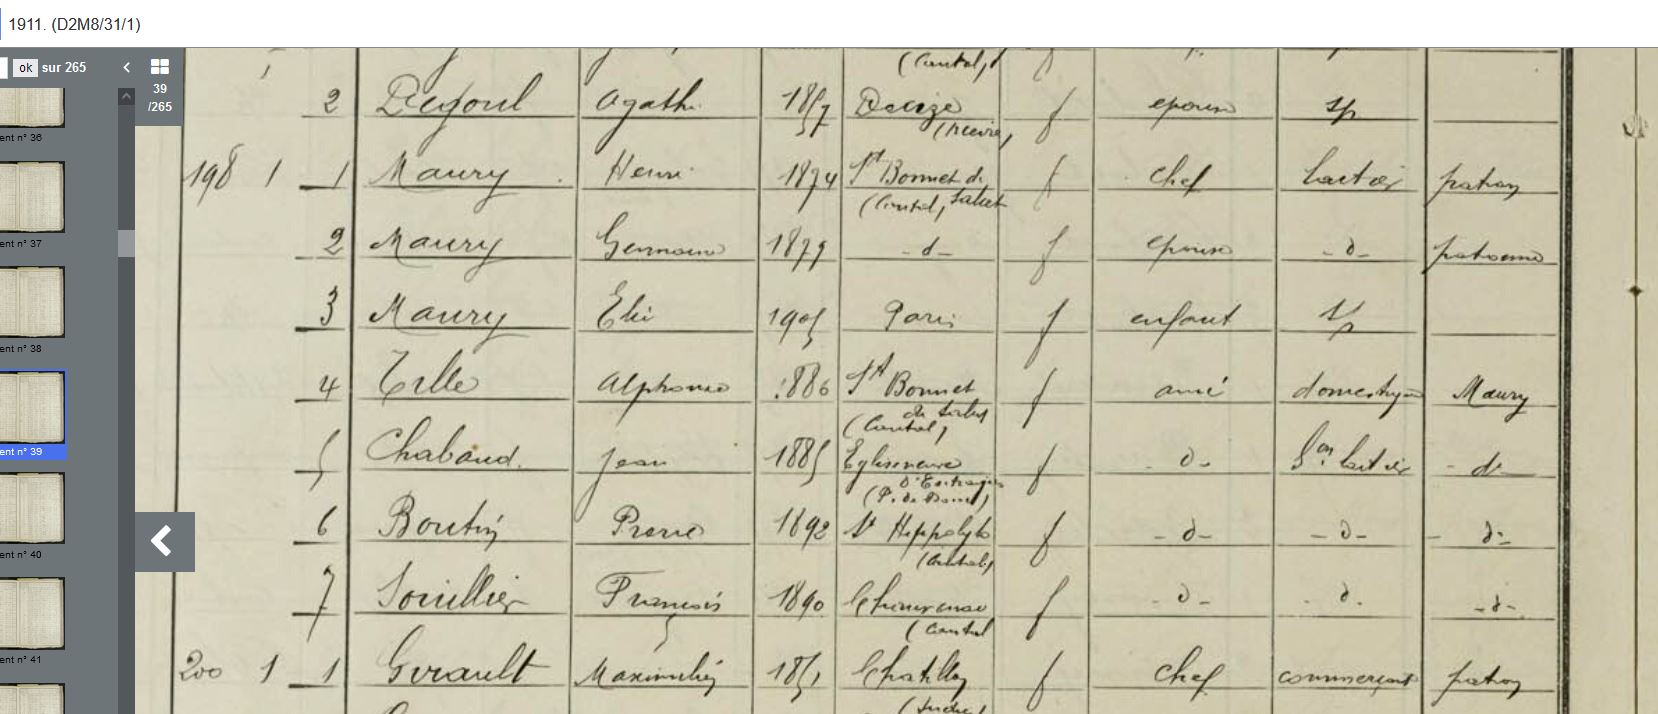 1911. (D2M8/31/1)
ok sur 265
39
/265
ent n° 36
ent n° 37
ent n° 38
ent n° 39
ent n° 40
ent n° 41
(Cantal)
2 Agathe 1857 Decize f epouse sp
(Nievre)
198 1 1 Maury Henri 1874 St Bonnet de f chef laitier patron
(Cantal) Salers
2 Maury Germaine 1879 -d- f epouse -d- patronne
3 Maury Elie 1905 Paris f enfant sp
4 Tille Alphonse 1886 St Bonnet f ami domestique Maury
de Salers
(Cantal)
5 Chabaud Jean 1885 Egliseneuve f -d- Gon laitier -d-
d'Entraigues
(P. de Dome)
6 Boutin Pierre 1892 St Hippolyte f -d- -d- -d-
(Cantal)
7 Souillier François 1890 f -d- -d- -d-
(Cantal
200 1 1 Girault Maximilien 1851 Chatillon f chef commerçant patron
(Indre)